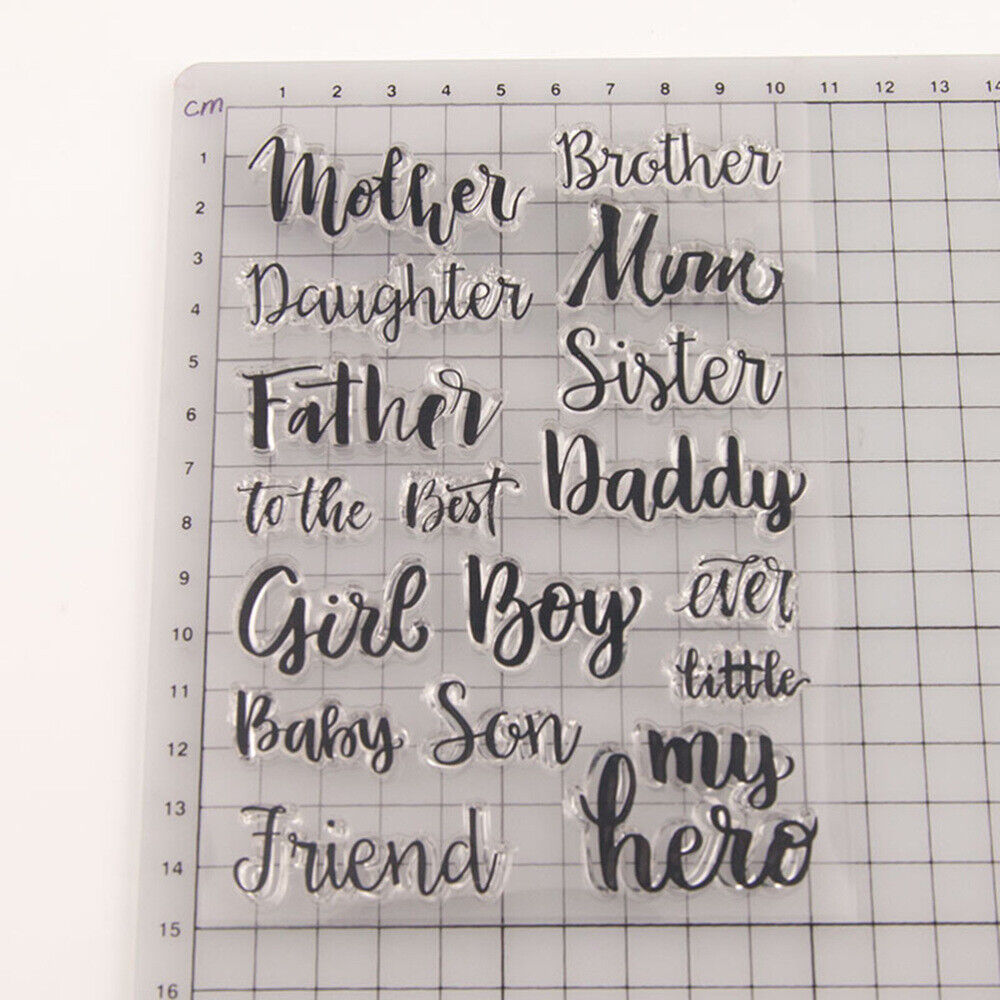 1 2 3 4 5 6 7 8 9 10 11 12 13 14
cm
1
2
3
4
5
6
7
8
9
10
11
12
13
14
15
16
Mother Brother
Mom
Daughter
Sister
Father
Daddy
to the Best
Girl Boy ever
little
Baby Son
my
hero
Friend